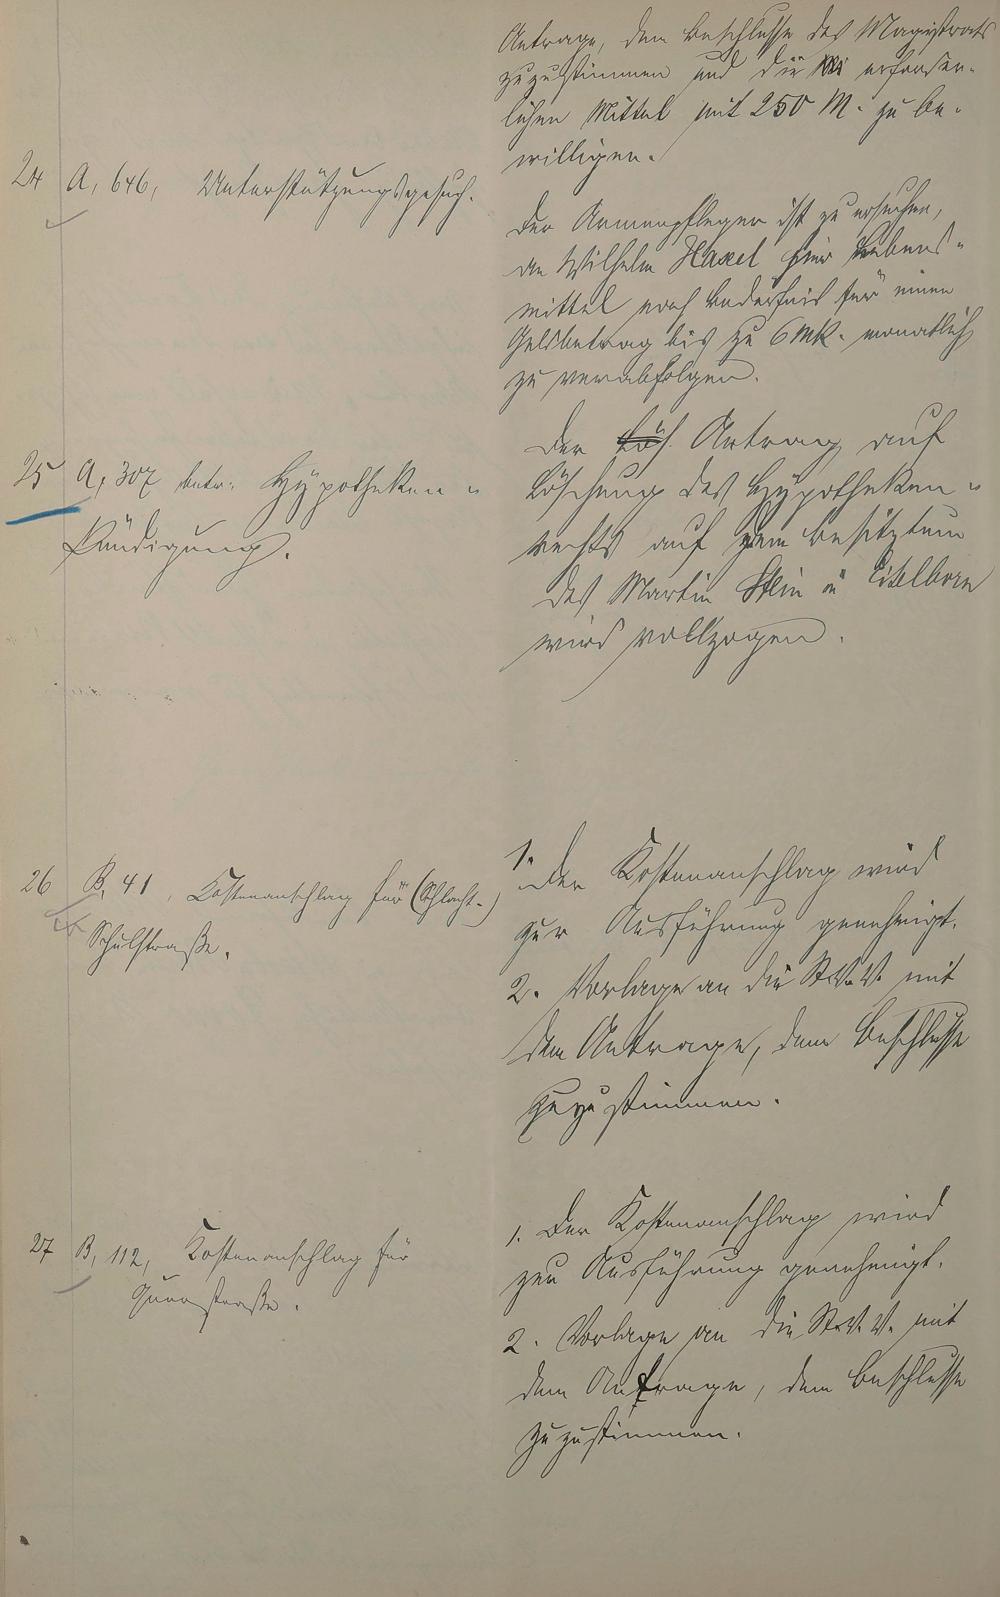 Antrage, dem Beschlusse des Magistrats
zuzustimmen und die erforder-
lichen Mittel mit 250 M. zu be-
willigen.
24 A, 646, Unterstützungsgesuch.
Der Armenpfleger ist zu ersuchen,
de Wilhelm Haxel hier Lebens-
mittel nach Bedürfnis für einen
Geldbetrag bis zu 6 Mk. monatlich
zu verabfolgen.
25 A, 307 betr. Hypotheken-
kündigung.
Der Lös. Antrag auf
Löschung des Hypotheken-
rechts auf dem Besitztum
des Martin Stein in Eitelborn
wird vollzogen.
26 B, 41, Kostenanschlag für (Schlacht-)
Schulstraße.
1. Der Kostenanschlag wird
zur Ausführung genehmigt.
2. Vorlage an die St.V.V. mit
dem Antrage, dem Beschlusse
zuzustimmen.
27 B, 112, Kostenanschlag für
Querstraße.
1. Der Kostenanschlag wird
zur Ausführung genehmigt.
2. Vorlage an die St.V.V. mit
dem Antrage, dem Beschlusse
zuzustimmen.